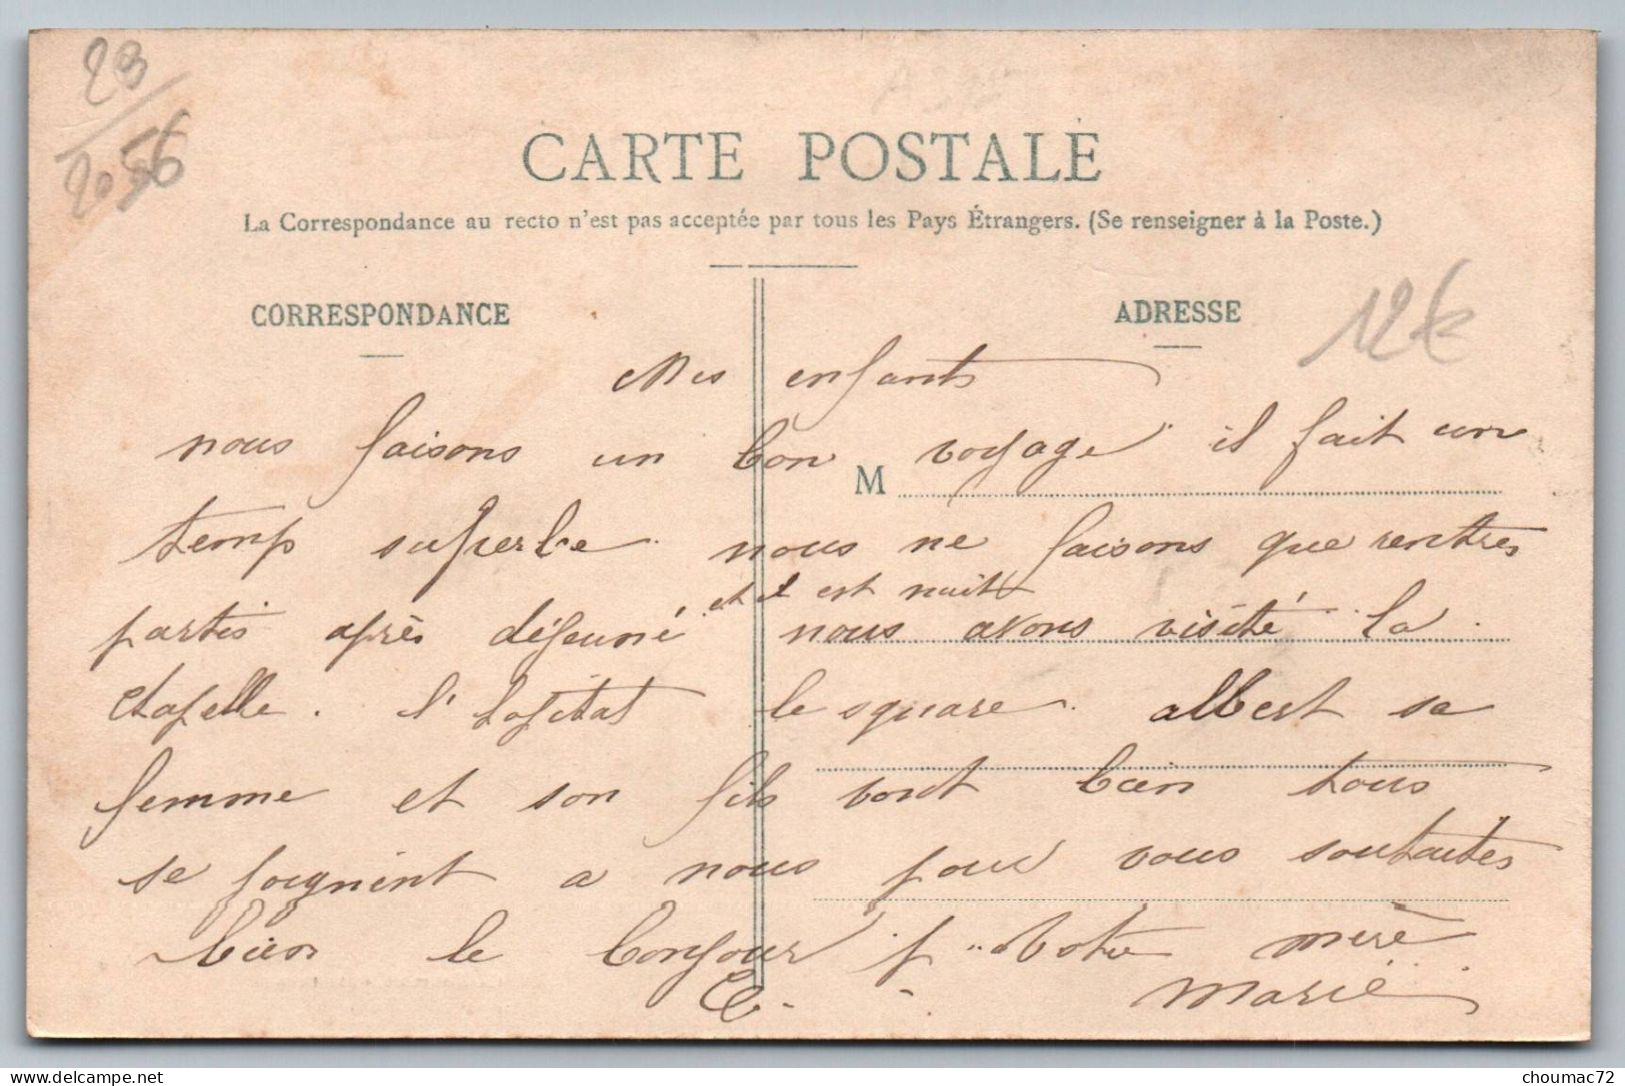 23
2056
CARTE POSTALE
La Correspondance au recto n'est pas acceptée par tous les Pays Étrangers. (Se renseigner à la Poste.)
CORRESPONDANCE
ADRESSE
12€
Mes enfants
nous faisons un bon voyage il fait un
M
temp superbe. nous ne faisons que rentres
et il est nuit
partis après déjeuné nous avons visité la
chapelle. l'hopital le square. albert sa
femme et son fils vont bien tous
se joignent a nous pour vous souhaites
bien le bonjour Votre mère
Marie
choumac72